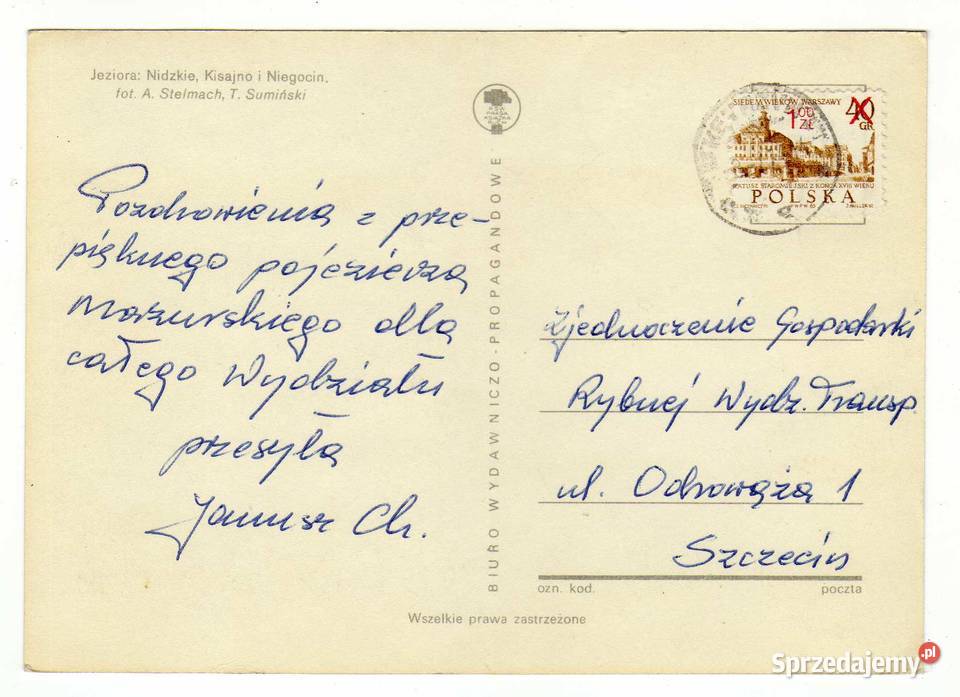 Jeziora: Nidzkie, Kisajno i Niegocin.
fot. A. Stelmach, T. Sumiński
Pozdrowienia z prze-
pięknego pojezierza
Mazurskiego dla
całego Wydziału
przesyła
Janusz Ch.
BIURO WYDAWNICZO-PROPAGANDOWE
RSW
PRASA
KSIĄŻKA
RUCH
SIEDEM WIEKÓW WARSZAWY
1,00 ZŁ
40 GR
RATUSZ STAROMIEJSKI Z KOŃCA XVIII WIEKU
POLSKA
Zjednoczenie Gospodarki
Rybnej Wydz. Transp.
ul. Odrowąża 1
Szczecin
ozn. kod. poczta
Wszelkie prawa zastrzeżone
Sprzedajemy.pl